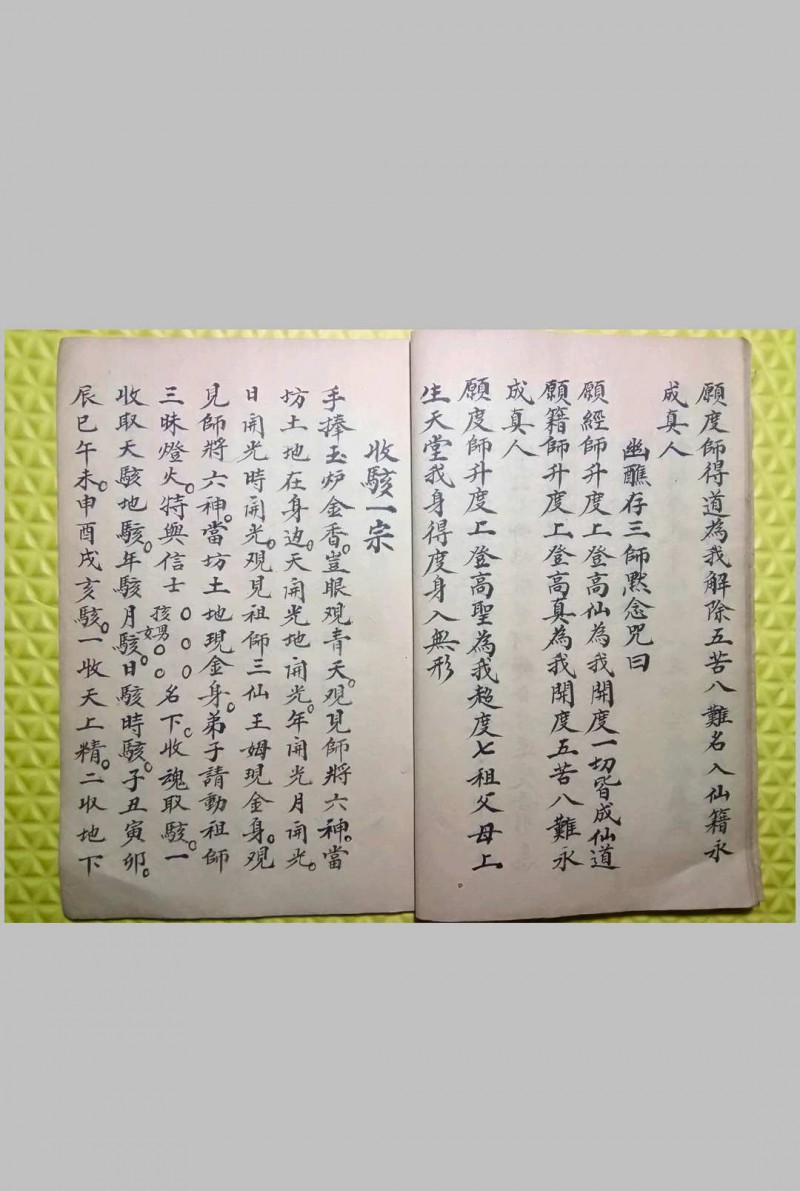 願度師得道為我解除五苦八難名入仙籍永
成真人
幽醮存三師默念咒曰
願經師升度上登高仙為我開度一切皆成仙道
願籍師升度上登高真為我開度五苦八難永
成真人
願度師升度上登高聖為我超度七祖父母上
生天堂我身得度身入無形
收駭一宗
手捧玉炉金香。豈眼观青天。观見師將六神。當
坊土地在身边。天開光地開光。年開光月開光。
日開光時開光。观見祖师三仙王姆現金身。观
見師將六神。當坊土地現金身。弟子請動祖師
三昧燈火。特與信士 孩男女 ○○○○○○名下。收魂取駭。一
收取天駭地駭。年駭月駭。日駭時駭。子丑寅卯。
辰巳午未。申酉戌亥駭。一收天上精。二収地下